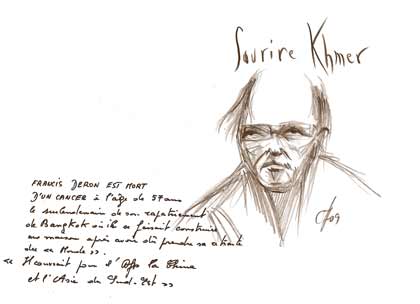 Sourire Khmer
FRANCIS DERON EST MORT
D'UN CANCER à l'âge de 57 ans
le surlendemain de son rapatriement
de Bangkok où il se faisait construire
une maison après avoir dû prendre sa retraite
du « Monde ».
« Il couvrait pour l' la Chine
et l'Asie du Sud-Est »
09